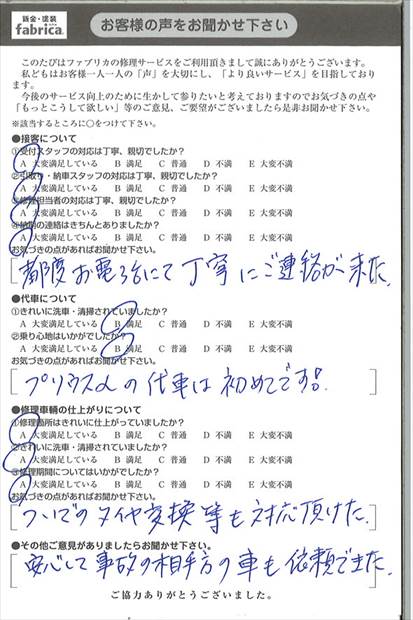 鈑金・塗装
fabrica.
お客様の声をお聞かせ下さい
このたびはファブリカの修理サービスをご利用頂きまして誠にありがとうございます。
私どもはお客様一人一人の「声」を大切にし、「より良いサービス」を目指しており
ます。
今後のサービス向上のために生かして参りたいと考えておりますのでお気づきの点や
「もっとこうして欲しい」等のご意見、ご要望がございましたら是非お聞かせ下さい。
※該当するところに○をつけて下さい。
●接客について
①受付スタッフの対応は丁寧、親切でしたか?
A 大変満足している B 満足 C 普通 D 不満 E 大変不満
②引取り・納車スタッフの対応は丁寧、親切でしたか?
A 大変満足している B 満足 C 普通 D 不満 E 大変不満
③修理担当者の対応は丁寧、親切でしたか?
A 大変満足している B 満足 C 普通 D 不満 E 大変不満
④納期の連絡はきちんとありましたか?
A 大変満足している B 満足 C 普通 D 不満 E 大変不満
お気づきの点があればお聞かせ下さい。
都度お電話にて丁寧にご連絡が来た。
●代車について
①きれいに洗車・清掃されていましたか?
A 大変満足している B 満足 C 普通 D 不満 E 大変不満
②乗り心地はいかがでしたか?
A 大変満足している B 満足 C 普通 D 不満 E 大変不満
お気づきの点があればお聞かせ下さい。
プリウスαの代車は初めてです。
●修理車輌の仕上がりについて
①修理箇所はきれいに仕上がっていましたか?
A 大変満足している B 満足 C 普通 D 不満 E 大変不満
②きれいに洗車・清掃されていましたか?
A 大変満足している B 満足 C 普通 D 不満 E 大変不満
③修理期間についてはいかがでしたか?
A 大変満足している B 満足 C 普通 D 不満 E 大変不満
お気づきの点があればお聞かせ下さい。
ついでのタイヤ交換等も対応頂けた。
●その他ご意見がありましたらお聞かせ下さい。
安心して事故の相手方の車も依頼できた。
ご協力ありがとうございました。